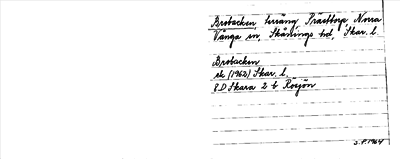 Brobacken, terräng, Prästtorp, Norra
Vånga sn, Skånings hd, Skar. l.
Brobacken
ek (1962) Skar. l.
8D Skara 2 b Rösjön
S.F. 1964